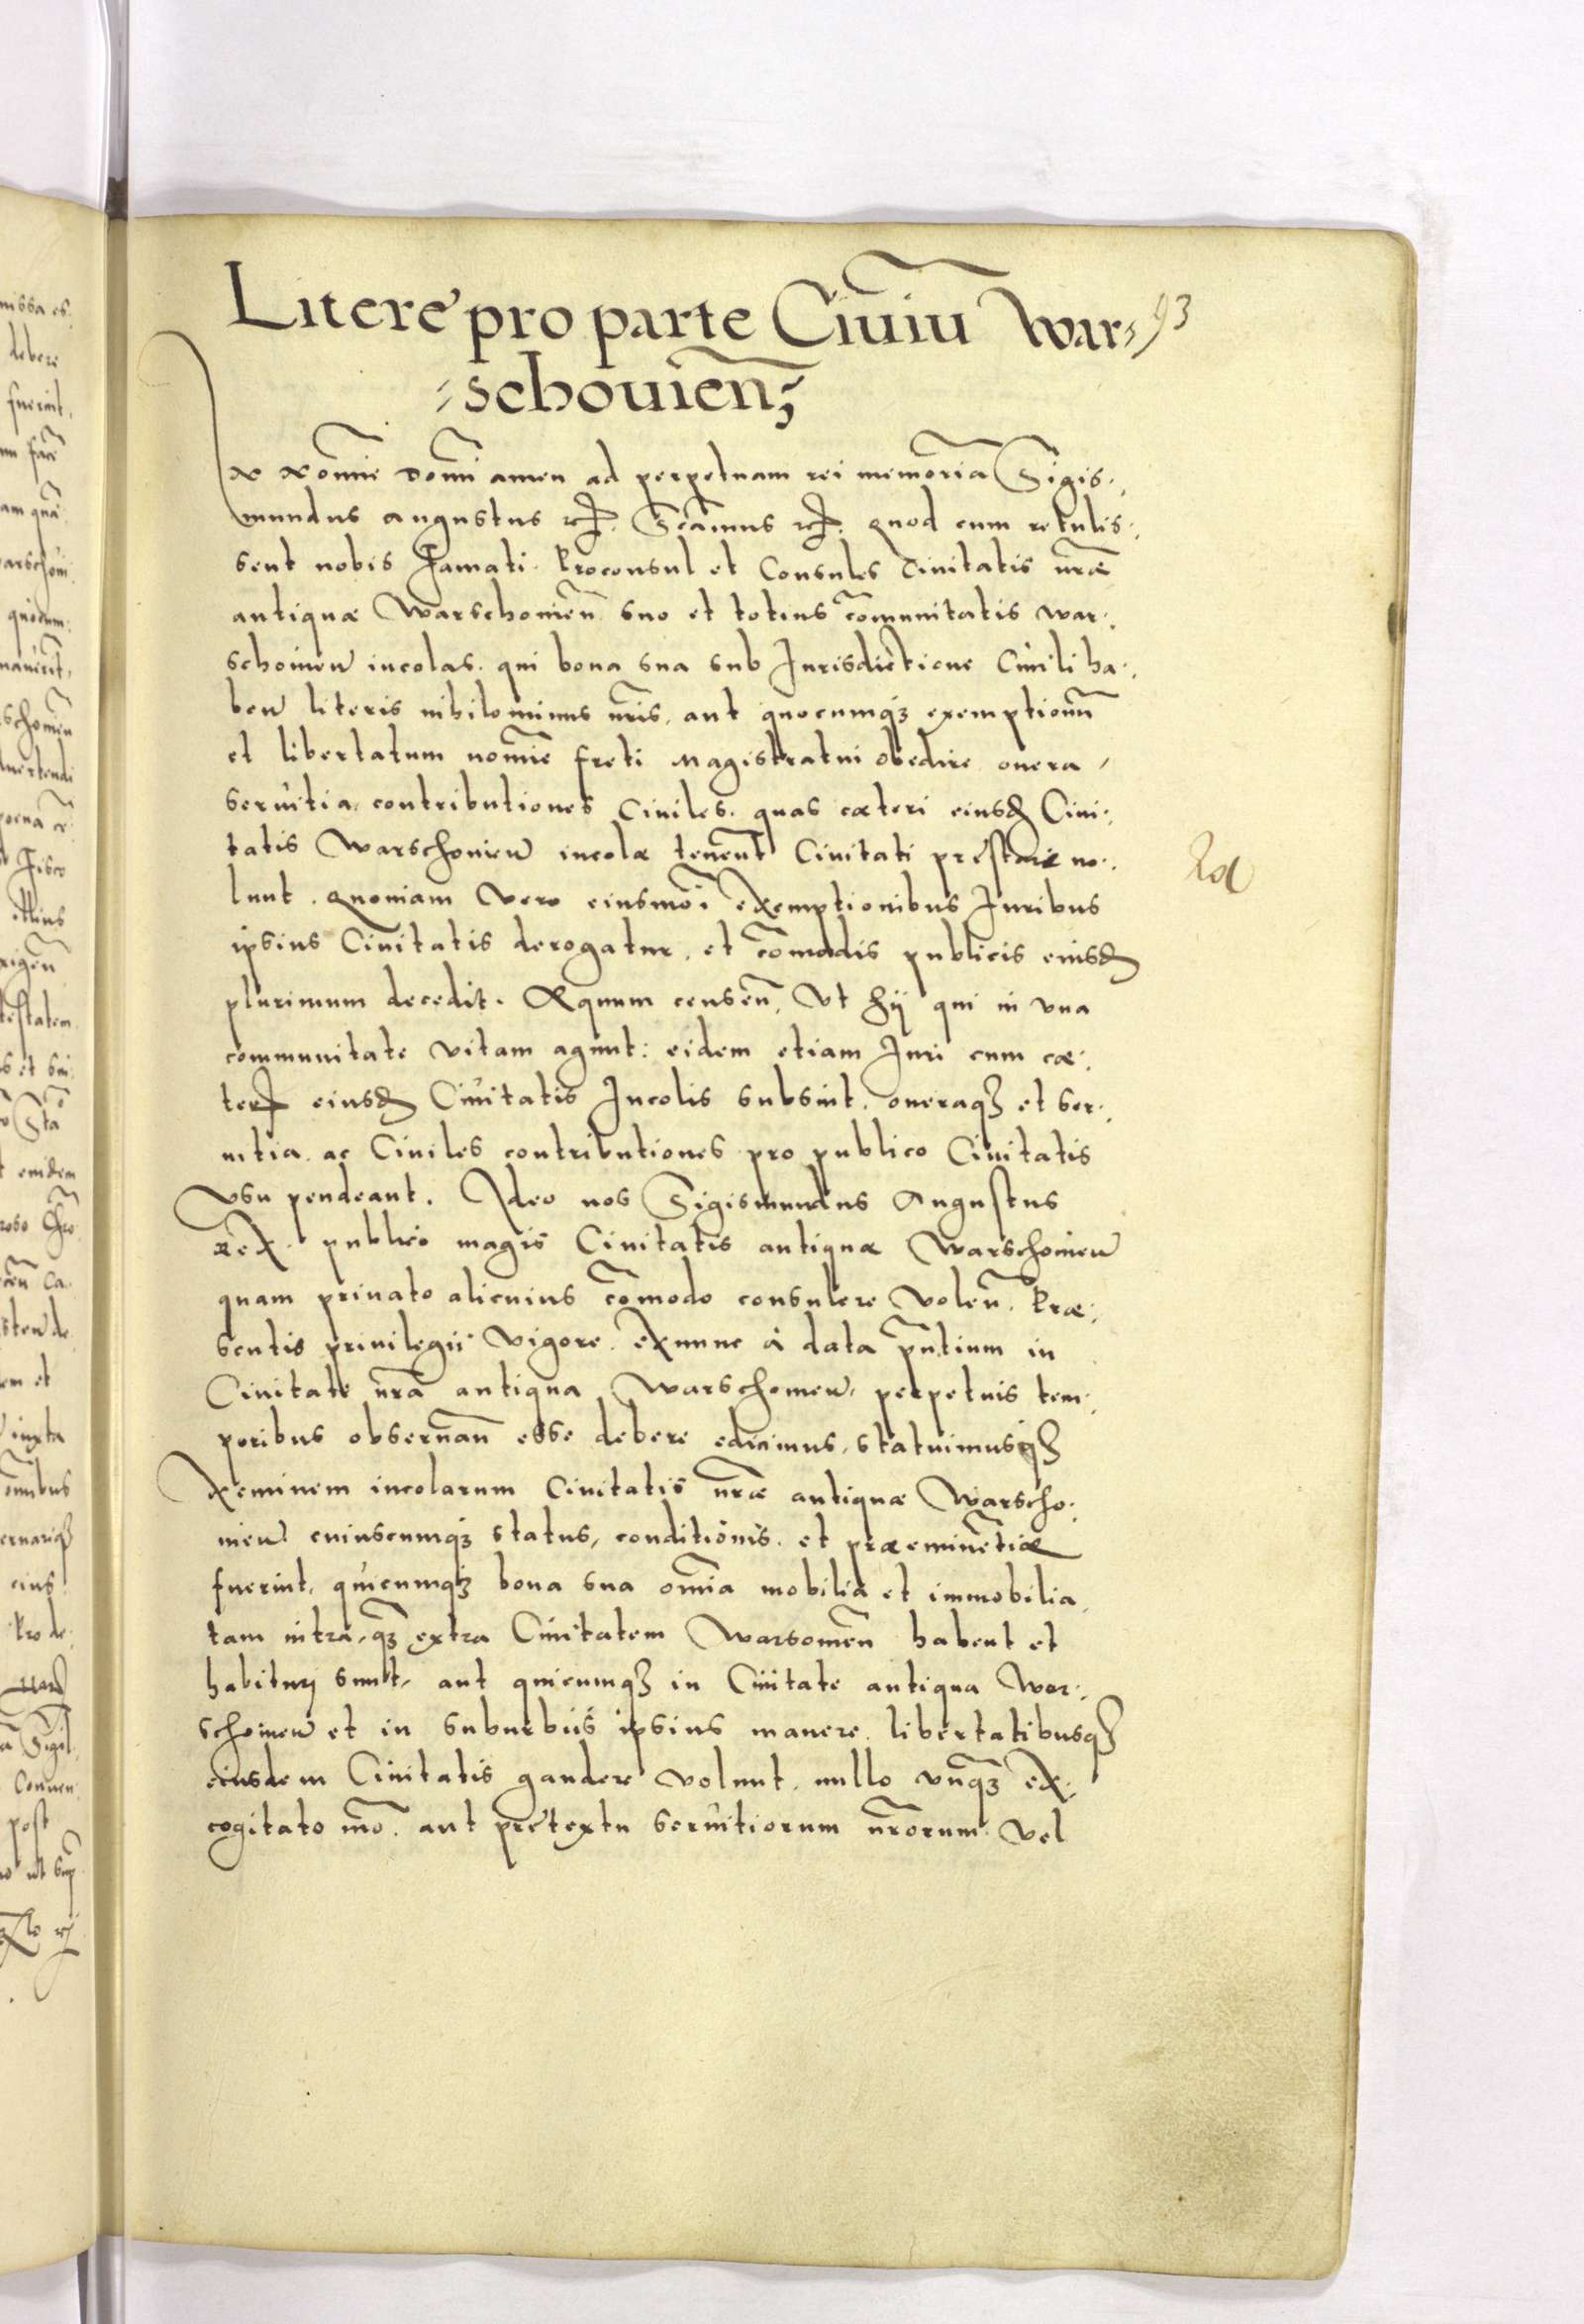 Litere pro parte Ciuiũ War⸗ 93
⸗schouien̄;
In Noīe Domī amen ad perpetuam rei memoriā Sigis⸗
mundus Augustus etc. Sc̄amus etc. Quod cum retulis⸗
sent nobis Famati Proconsul et Consules Ciuitatis nr̄æ
antiquæ Warschouien̄ suo et totius com̄unitatis war⸗
schouien̄ incolas. qui bona sua sub Jurisdictione Ciuili ha⸗
ben̄ literis nihilominus nr̄is, aut quocumqꝫ exemptionū
et libertatum noīe freti Magistratui obedire onera,
seruitia, contributiones Ciuiles. quas cæteri eiusd̄ Ciui⸗
tatis Warschouien̄ incolæ tenent̄ Ciuitati prestare no⸗
lunt. Quoniam vero eiusmōi exemptionibus Juribus
ipsius Ciuitatis derogatur, et com̄odis publicis eiusd̄
plurimum decedit. Æquum censen̄, Vt hij qui in vna
communitate vitam agunt: eidem etiam Juri cum cæ⸗
teris eiusd̄ Ciuitatis Incolis subsint. oneraqꝫ et ser⸗
uitia ac Ciuiles contributiones pro publico Ciuitatis
vsu pendeant. Ideo nos Sigismundus Augustus
Rex. publico magis Ciuitatis antiquæ Warschouien̄
quam priuato alicuius com̄odo consulere volen̄. Præ⸗
sentis priuilegii vigore. Exnunc à data pn̄tium in
Ciuitate nr̄a antiqua Warschouien̄, perpetuis tem⸗
poribus obseruan̄ esse debere edicimus, statuimusqꝫ
Neminem incolarum Ciuitatis nr̄æ antiquæ Warscho⸗
uien̄ cuiuscumqꝫ status, conditionis. et præeminētiæ
fuerint, quicumqꝫ bona sua om̄ia mobilia et immobilia
tam intra, qꝫ extra Ciuitatem Warsouien̄ habent et
habituri sunt, aut quicumqꝫ in Ciuitate antiqua War⸗
schouien̄ et in suburbiis ipsius manere. libertatibusqꝫ
eiusdem Ciuitatis gaudere volunt. nullo vnqꝫ ex⸗
cogitato mō. aut pretextu seruitiorum nr̄orum vel